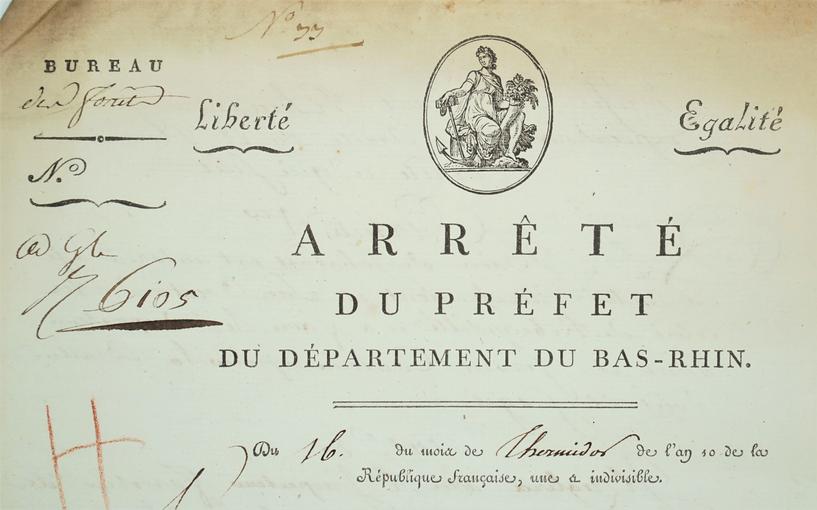 N.o 33
BUREAU
des forets
Liberté
Egalité
N.o
6105
ARRÊTÉ
DU PRÉFET
DU DÉPARTEMENT DU BAS-RHIN.
H
Du 16. du mois de Thermidor de l'an 10 de la
République française, une & indivisible.